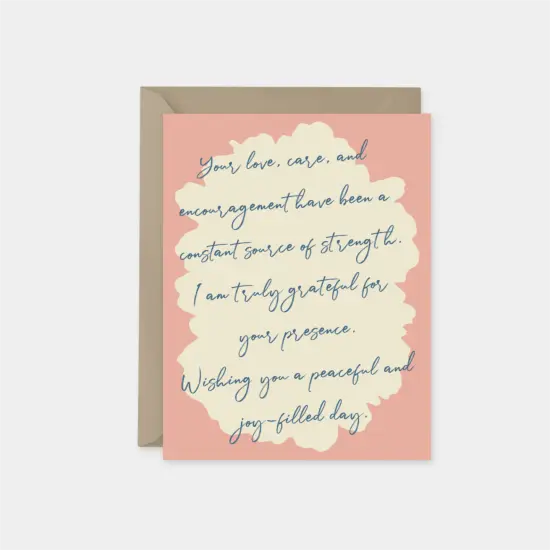 Your love, care, and
encouragement have been a
constant source of strength.
I am truly grateful for
your presence.
Wishing you a peaceful and
joy-filled day.